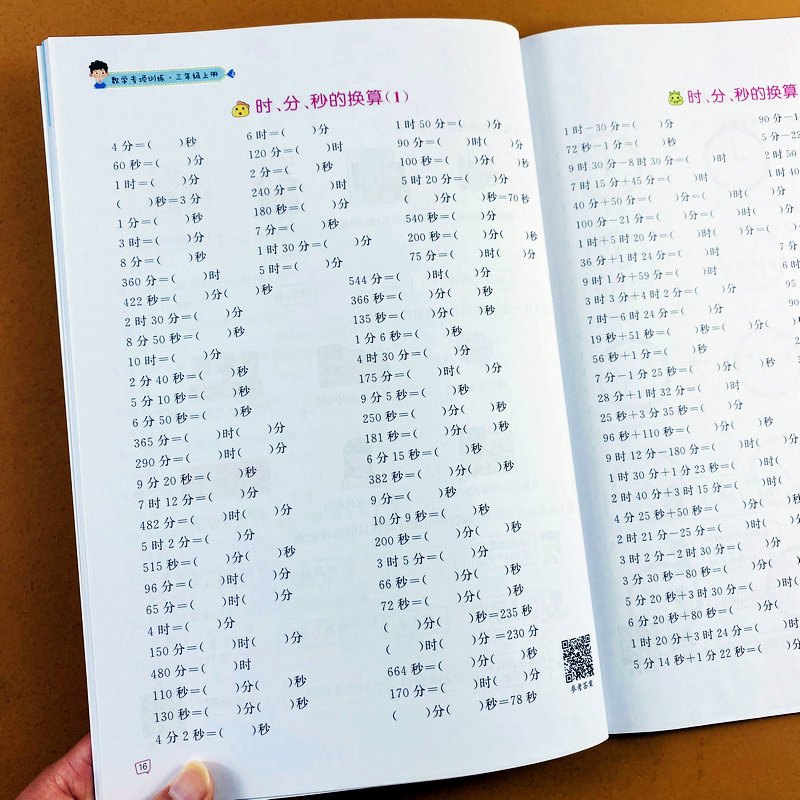 数学专项训练·三年级上册
时、分、秒的换算(1)
4分=(  )秒
60秒=(  )分
1时=(  )分
(  )秒=3分
1分=(  )秒
3时=(  )分
8分=(  )秒
360分=(  )时
422秒=(  )分(  )秒
2时30分=(  )分
8分50秒=(  )秒
10时=(  )分
2分40秒=(  )秒
5分10秒=(  )秒
6分50秒=(  )秒
365分=(  )时(  )分
290分=(  )时(  )分
9分20秒=(  )秒
7时12分=(  )分
482分=(  )时(  )分
5时2分=(  )分
515秒=(  )分(  )秒
96分=(  )时(  )分
65分=(  )时(  )分
4时=(  )分
150分=(  )时(  )分
480分=(  )时
110秒=(  )分(  )秒
130秒=(  )分(  )秒
4分2秒=(  )秒
6时=(  )分
120分=(  )时
2分=(  )秒
240分=(  )时
180秒=(  )分
7分=(  )秒
1时30分=(  )分
5时=(  )分
1时50分=(  )分
90分=(  )时(  )分
100秒=(  )分(  )秒
5时20分=(  )分
(  )分(  )秒=70秒
540秒=(  )分
200秒=(  )分(  )秒
75分=(  )时(  )分
544分=(  )时(  )分
366秒=(  )分(  )秒
135秒=(  )分(  )秒
1分6秒=(  )秒
4时30分=(  )分
175分=(  )时(  )分
9分5秒=(  )秒
250秒=(  )分(  )秒
181秒=(  )分(  )秒
6分15秒=(  )秒
382秒=(  )分(  )秒
9分=(  )秒
10分9秒=(  )秒
200秒=(  )分(  )秒
3时5分=(  )分
66秒=(  )分(  )秒
72秒=(  )分(  )秒
(  )分(  )秒=235秒
(  )时(  )分=230分
664秒=(  )分(  )秒
170分=(  )时(  )分
(  )分(  )秒=78秒
参考答案
16
时、分、秒的换算
1时-30分=(  )分
72秒-1分=(  )秒
9时30分-8时30分=(  )时
7时15分+45分=(  )时
40分+50分=(  )分=(  )时(  )分
100分-21分=(  )分=(  )时(  )分
1时+5时20分=(  )时(  )分
36分+1时24分=(  )时
9时1分+59分=(  )时
3时3分+4时2分=(  )分
7时-6时24分=(  )分
19秒+51秒=(  )秒=(  )分(
56秒+1分=(  )秒
7分-1分25秒=(  )分(
28分+1时32分=(  )时
25秒+3分35秒=(  )分
96秒+110秒=(  )分(  )秒
9时12分-180分=(  )时(  )分
1时30分+1分23秒=(  )时(
2时40分+3时15分=(  )时(
4分25秒+50秒=(  )分(
2时21分-25分=(  )时(
3时2分-2时30分=(  )分
3分30秒-80秒=(  )分(
5分20秒+3时30分=(  )时(
6分20秒+80秒=(  )分(
1时20分+3时24分=(  )时(
5分14秒+1分22秒=(  )分(
90分-1
5分-22
2时50
1时40
7分
6时
95
90